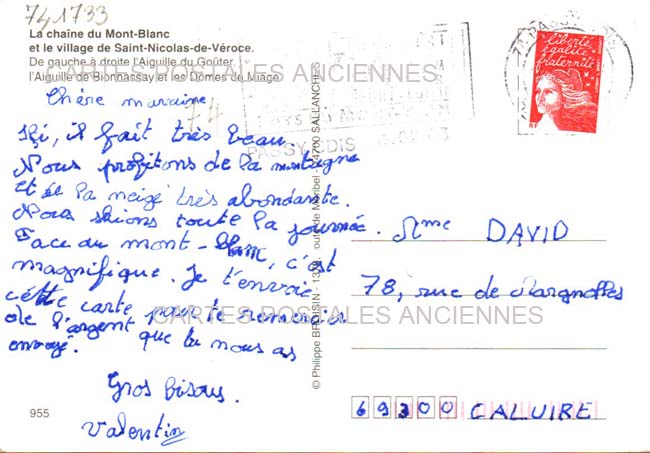 741733
La chaîne du Mont-Blanc
et le village de Saint-Nicolas-de-Véroce.
De gauche à droite l'Aiguille du Goûter,
l'Aiguille de Bionnassay et les Dômes de Miage
CARTES POSTALES ANCIENNES
74
PASSY CDIS
liberté
égalité
fraternité
RF
LA POSTE
Chère marraine
Ici, il fait très beau.
Nous profitons de la montagne
et de la neige très abondante.
Nous skions toute la journée.
Face au mont-blanc, c'est
magnifique. Je t'envoie
cette carte pour te remercier
de l'argent que tu nous as
envoyé.
Gros bisous.
Valentin
955
© Philippe BROISIN - 74700 SALLANCHES
Mme DAVID
78, rue de Margnolles
CARTES POSTALES ANCIENNES
69300 CALUIRE